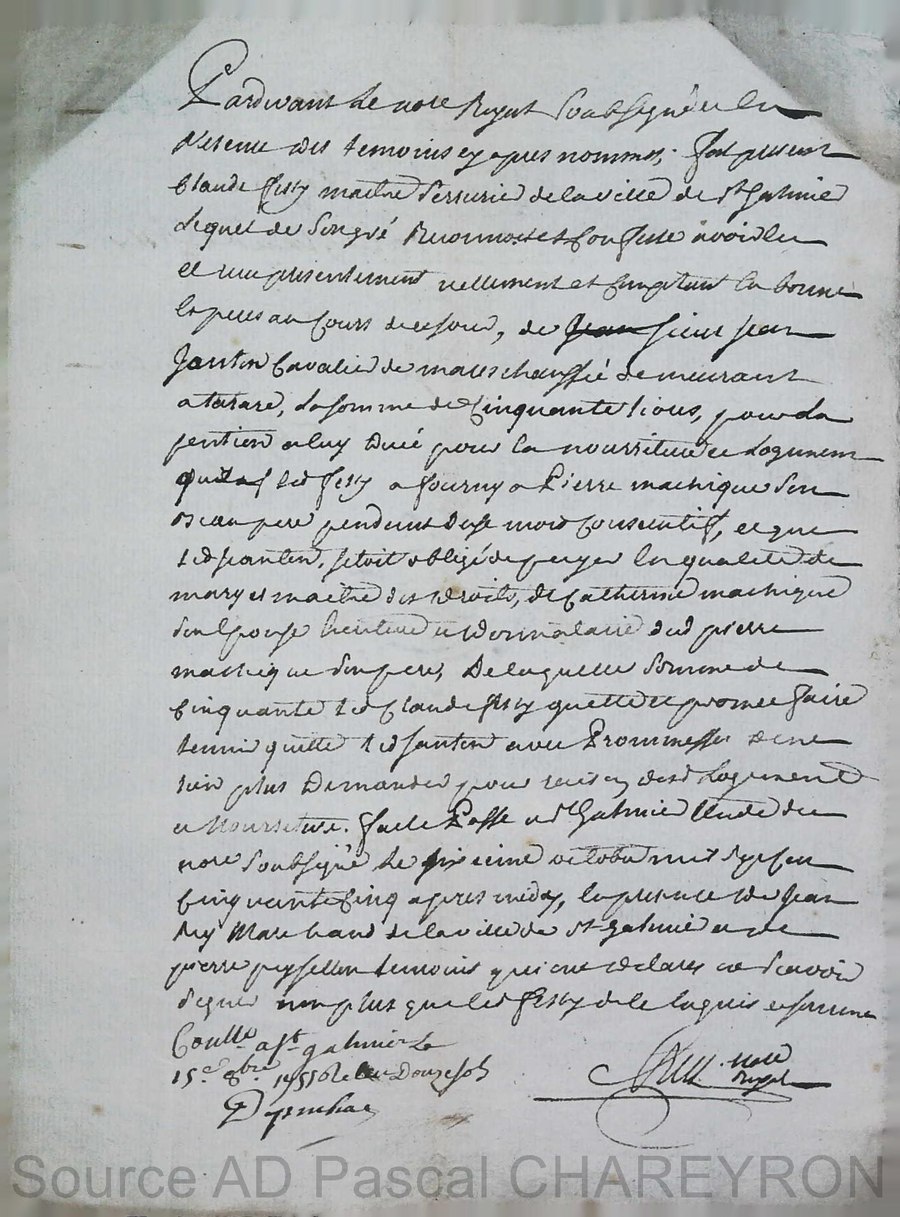 Pardevant le nore Royal Soubsigné et en
Presence des temoins cy apres nommes, fut present
Claude fessy maitre Serrurie de la ville de St Galmie
lequel de Son gré Reconnoit et Confesse avoir eu
et reçu presentement reellement et Comptant en bonne
Espece au Cours de ce jour, de Jean sieur jean
Jantin Cavalie de mareschaussée demeurant
a tarare, la somme de Cinquante livres, pour la
pention a luy Due pour la nourriture et logement
quil led fessy a fourny a Pierre machique Son
beau pere pendant mois Consecutifs, et que
led jantin, setoit obligé de payer en qualité de
mary et maitre des droits, de Catherine machique
Son Epouse heritiere et donnataire dud pierre
machique Son pere, De laquelle Somme de
Cinquante led Claude fessy quitte et promet faire
tenir quitte led jantin avec Prommesse de ne
rien plus Demander pour raison desd logement
et Nourriture. fait et Passé a St Galmie Etude du
nore Soubsigné le sixieme octobre mil sept cen
Cinquante Cinq apres midy, En presence de jean
Rey Marchand de la ville de St galmie et de
pierre peyssellon temoins qui ont declaré ne Scavoir
Signer non plus que led fessy de ce enquis et sommé
Conllé a St galmier le
15e 8bre 1755 Reçu Douze sols
nore
Royal
Source AD Pascal CHAREYRON